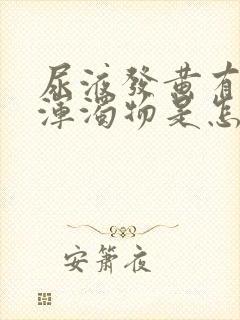 尿液發黃有
渾濁物是怎
安簫夜